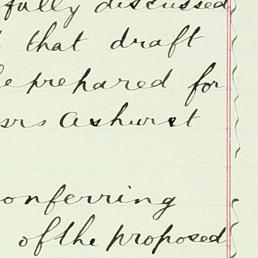 fully discussed
that draft
prepared for
srs Ashurst
onferring
of the proposed